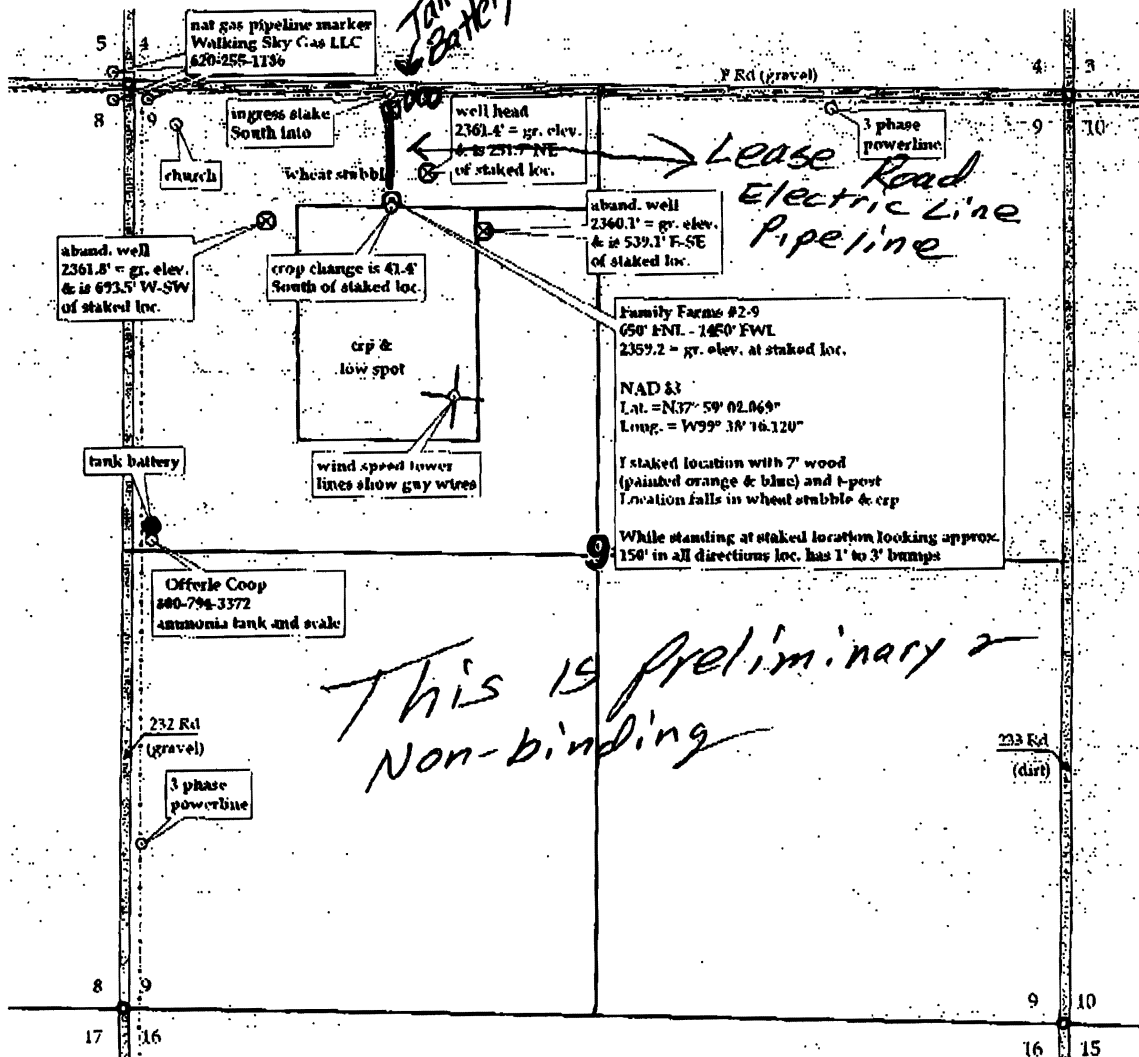 Tank
Battery
nat gas pipeline marker
Walking Sky Gas LLC
620-255-1136
5 4
8 9
church
ingress stake
South into
wheat stubble
well head
2361.4' = gr. elev.
& is 251.7' NE
of staked loc.
F Rd (gravel)
4 3
9 10
3 phase
powerline
Lease Road
Electric Line
Pipeline
aband. well
2361.8' = gr. elev.
& is 693.5' W-SW
of staked loc.
crop change is 41.4'
South of staked loc.
aband. well
2360.1' = gr. elev.
& is 539.1' E-SE
of staked loc.
crp &
low spot
wind speed tower
lines show guy wires
Family Farms #2-9
650' FNL - 1450' FWL
2359.2 = gr. elev. at staked loc.
NAD 83
Lat. = N37° 59' 02.069"
Long. = W99° 38' 16.120"
I staked location with 7' wood
(painted orange & blue) and t-post
Location falls in wheat stubble & crp
While standing at staked location looking approx.
150' in all directions loc. has 1' to 3' bumps
tank battery
9
Offerle Coop
800-794-3372
ammonia tank and scale
This is preliminary &
Non-binding
232 Rd
(gravel)
3 phase
powerline
233 Rd
(dirt)
8 9
17 16
9 10
16 15